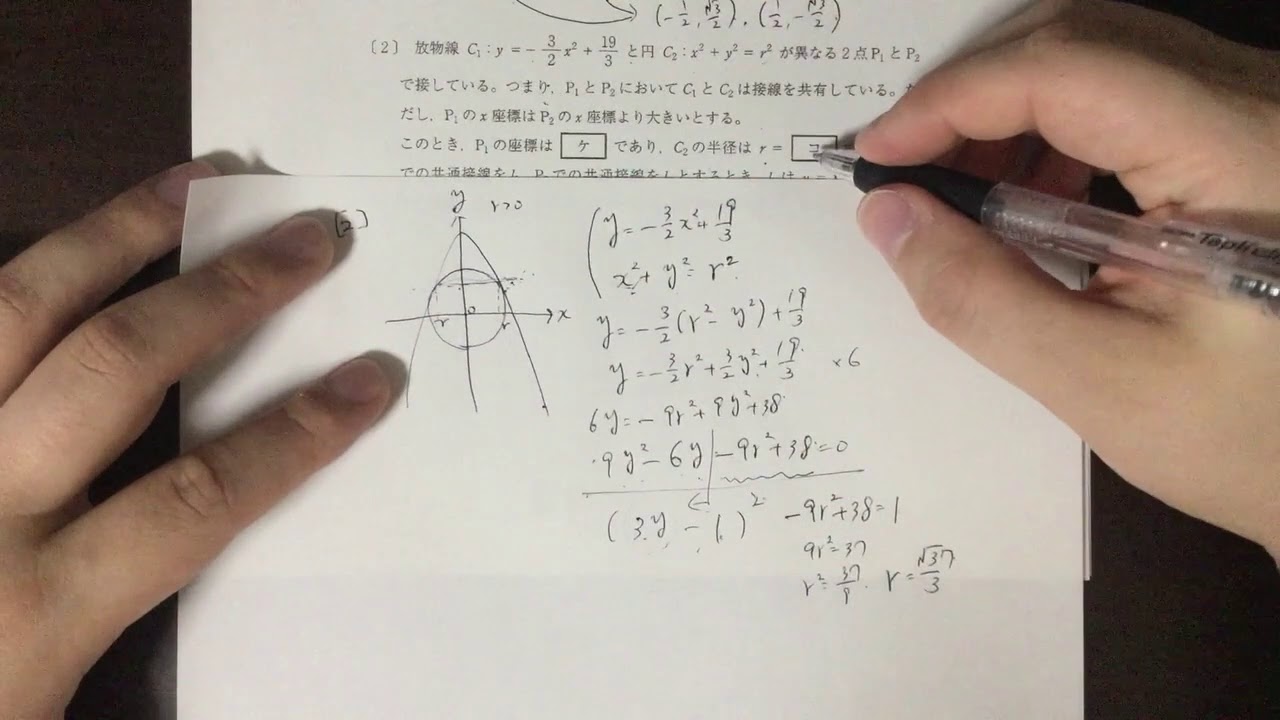 (-1/2, √3/2), (1/2, -√3/2)
〔2〕 放物線 C₁: y = -3/2 x² + 19/3 と円 C₂: x² + y² = r² が異なる2点P₁とP₂
で接している。つまり,P₁とP₂においてC₁とC₂は接線を共有している。た
だし,P₁のx座標はP₂のx座標より大きいとする。
このとき,P₁の座標は ケ であり,C₂の半径は r = コ
での共通接線を
での共通接線を
とするとき,
[2]
y
r>0
x
o
-r
r
y = -3/2 x² + 19/3
x² + y² = r²
y = -3/2 (r² - y²) + 19/3
y = -3/2 r² + 3/2 y² + 19/3 ×6
6y = -9r² + 9y² + 38
9y² - 6y - 9r² + 38 = 0
(3y - 1)²
-9r² + 38 = 1
9r² = 37
r² = 37/9. r = √37/3